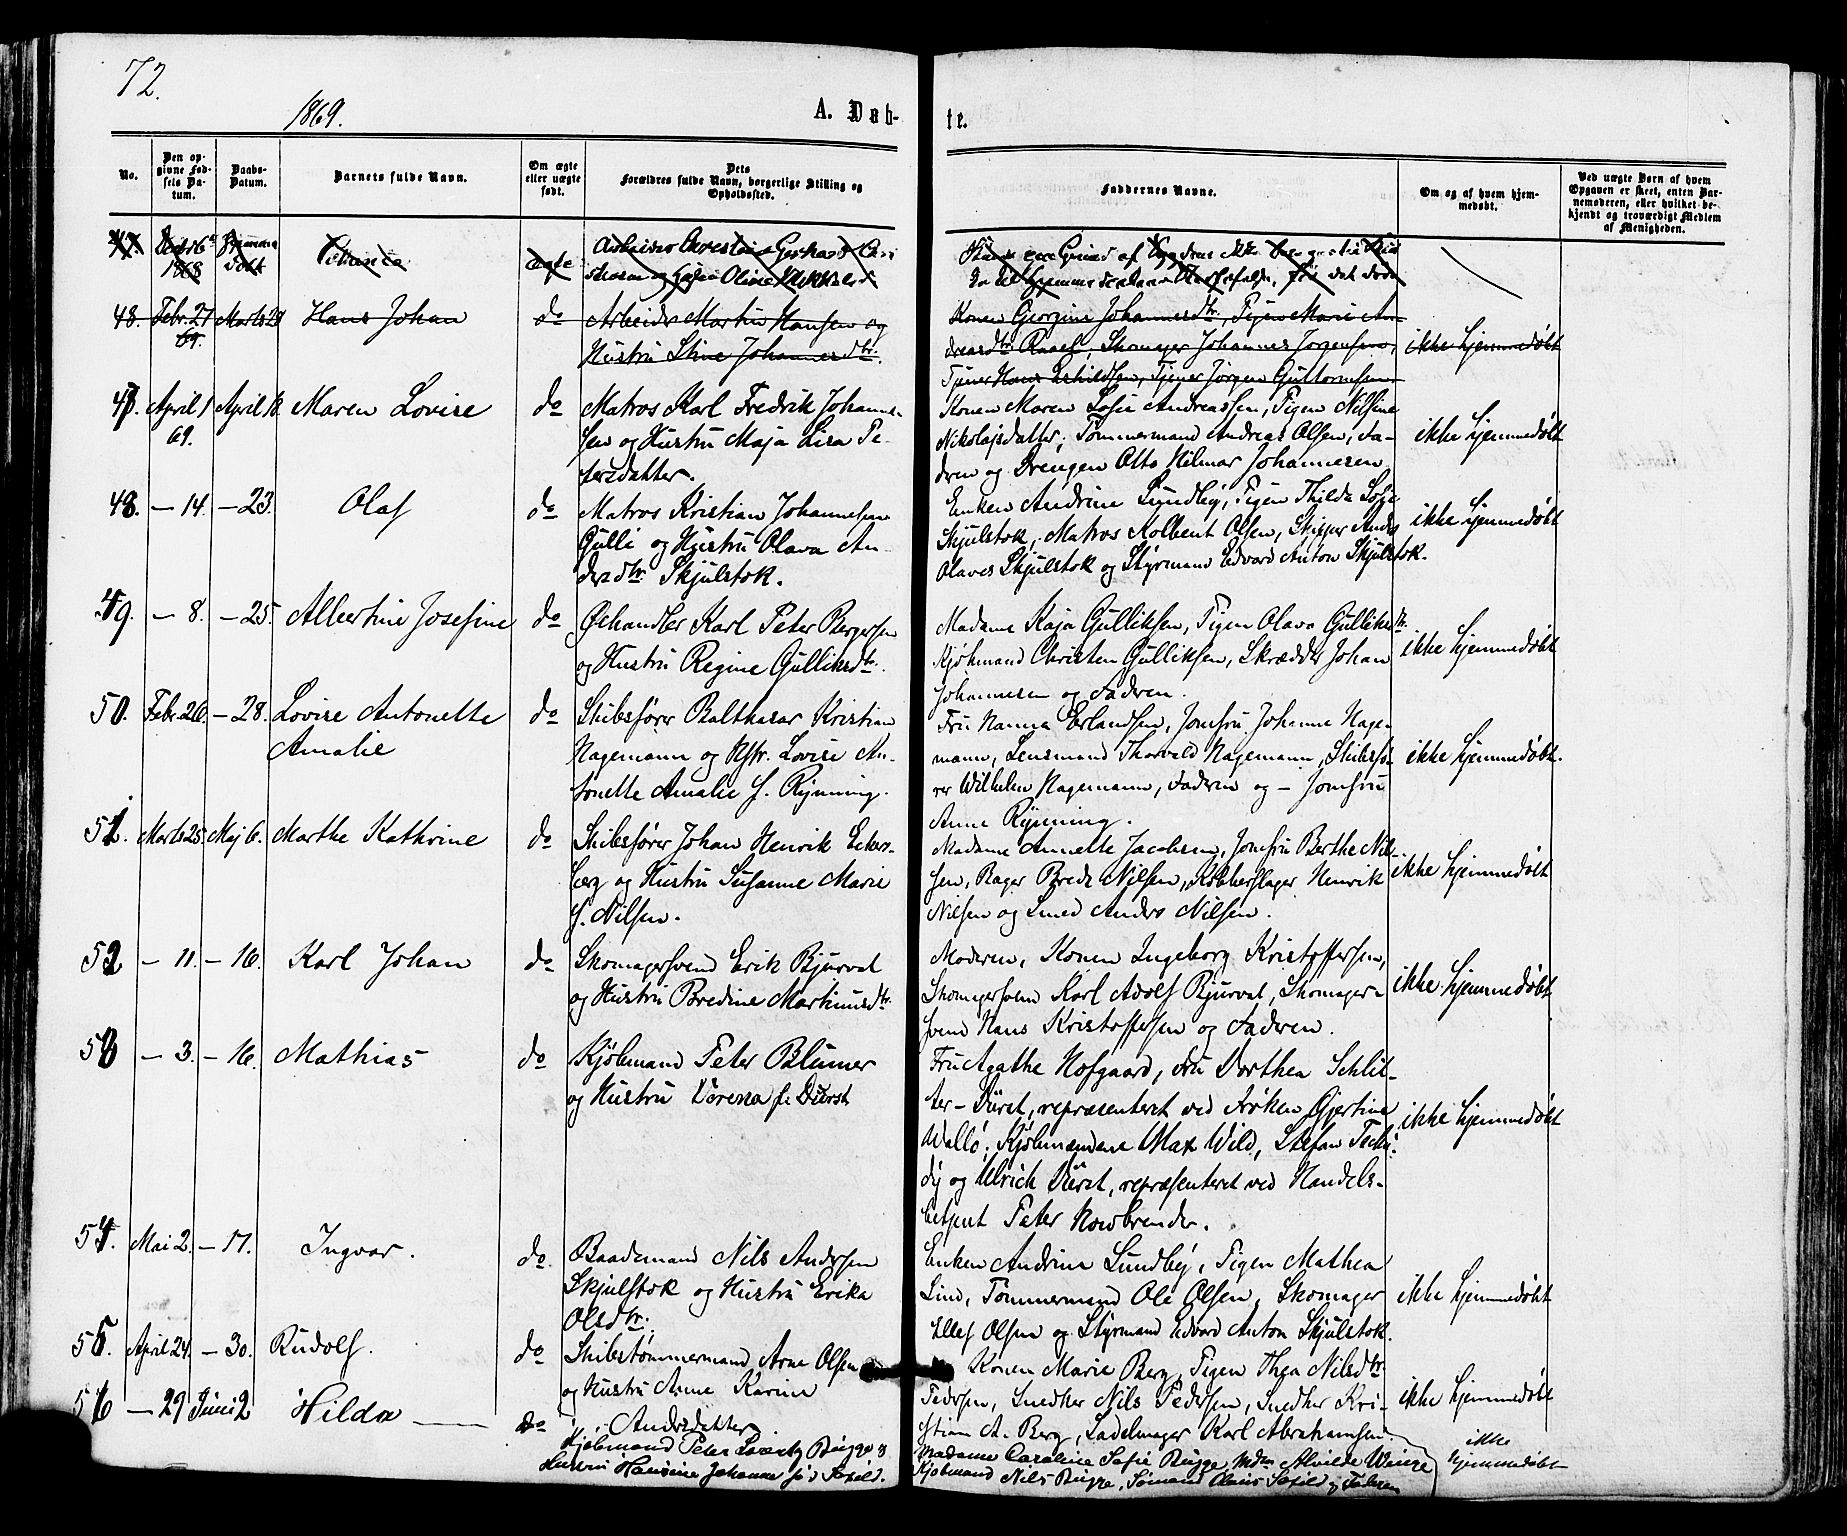 72.
1869.
A. Døb-
te.
No.
Den op-
givne Fød-
sels Da-
tum.
Daabs-
Datum.
Barnets fulde Navn.
Om ægte
eller uægte
født.
Dets
Forældres fulde Navn, borgerlige Stilling og
Opholdssted.
Faddernes Navne.
Om og af hvem hjem-
medøbt.
Ved uægte Børn af hvem
Opgaven er skeet, enten Bar-
nemoderen, eller hvilket be-
kjendt og troværdigt Medlem
af Menigheden.
47. 1868 ægte Arbeider
og Oline
48. Febr. 27 Marts 29 Hans Johan do Arbeider Martin Hansen og
69.
Hustru Stine Johannesdtr.
Konen Georgine Johannesdtr, Pigen Marie An-
dreasdtr Skomager Johannes Jørgensen,
Tjener Hans Eskildsen, Tjener Jørgen Guttormsen.
ikke hjemmedøbt
47. April 1 April 18. Maren Lovise do Matros Karl Fredrik Johanne-
69.
sen og Hustru Maja Lisa Pe-
tersdatter.
Konen Maren Sofie Andreassen, Pigen Nilsine
Nikolajsdatter, Tømmermand Andreas Olsen, Fa-
dren og Drengen Otto Hilmar Johannesen
ikke hjemmedøbt
48. - 14. - 23. Olaf do Matros Kristian Johannesen
Gulli og Hustru Olava An-
dersdtr Skjulstok.
Enken Andrine Lundby, Pigen Thilda Sofie
Skjulstok, Matros Kolbent Olsen, Skipper Anders
Olaves Skjulstok og Styrmand Edvard Anton Skjulstok.
ikke hjemmedøbt
49. - 8. - 25. Albertine Josefine do Øehandler Karl Peter Bergersen
og Hustru Regine Gulliksdtr.
Madame Kaja Gulliksen, Pigen Olava Gulliksdtr.
Kjøbmand Christen Gulliksen, Skrædder Johan
Johannesen og Fadren.
ikke hjemmedøbt
50. Febr. 26. - 28. Lovise Antonette
Amalie
do Skibsfører Balthasar Kristian
Hagemann og Hstr. Lovise An-
tonette Amalie f. Rynning.
Fru Hanna Erlandsen, Jomfru Johanne Hage-
mann, Lensmand Thorvald Hagemann, Skibsfø-
rer Wilhelm Hagemann, Fadren og - Jomfru
Anne Rynning.
ikke hjemmedøbt.
51. Marts 25. Maj 6. Marthe Kathrine do Skibsfører Johan Henrik Eckers-
berg og Hustru Susanne Marie
f. Nilsen.
Madame Annette Jacobsen, Jomfru Berthe Nil-
sen, Bager Brede Nilsen, Kobberslager Henrik
Nilsen og Smed Anders Nilsen.
ikke hjemmedøbt
52 - 11. - 16. Karl Johan do Skomagersvend Erik Bjurval
og Hustru Bredine Martinusdtr.
Moderen, Konen Ingeborg Kristoffersen,
Skomagersvend Karl Adolf Bjurval, Skomager-
svend Hans Kristoffersen og Fadren.
ikke hjemmedøbt
53 - 3. - 16. Mathias do Kjøbmand Peter Blumer
og Hustru Verena f. Dürst
Fru Agathe Hofgaard, Fru Dorthea Schlit-
ter-Dürst, repræsenteret ved Frøken Gjertine
Wallø, Kjøbmændene Max Wild, Stefan Tschu-
dy og Ulrich Dürst, repræsenteret ved Handels-
betjent Peter
ikke hjemmedøbt
54. Mai 2. - 17. Ingvar. do. Baademand Nils Andersen
Skjulstok og Hustru Erika
Olsdtr.
Enken Andrine Lundby, Pigen Mathea
Lind, Tømmermand Ole Olsen, Skomager
Ellef Olsen og Styrmand Edvard Anton Skjulstok.
ikke hjemmedøbt
55. April 24. - 30. Rudolf. do Skibstømmermand Arne Olsen
og Hustru Anne Karine
Andersdatter
Konen Marie Berg, Pigen Thea Nilsdtr
Pedersen, Snedker Nils Pedersen, Snedker Kri-
stian A. Berg, Sadelmager Karl Abrahamsen.
ikke hjemmedøbt
56 - 29 Juni 2 Hilda do Kjøbmand Peter Lorentz Bugge og
Hustru Hansine Johanne f.
Madame Caroline Sofie Bugge, Mdm Alvilde Winge
Kjøbmand Nils Bugge, Sømand og Fadren
ikke
hjemmedøbt